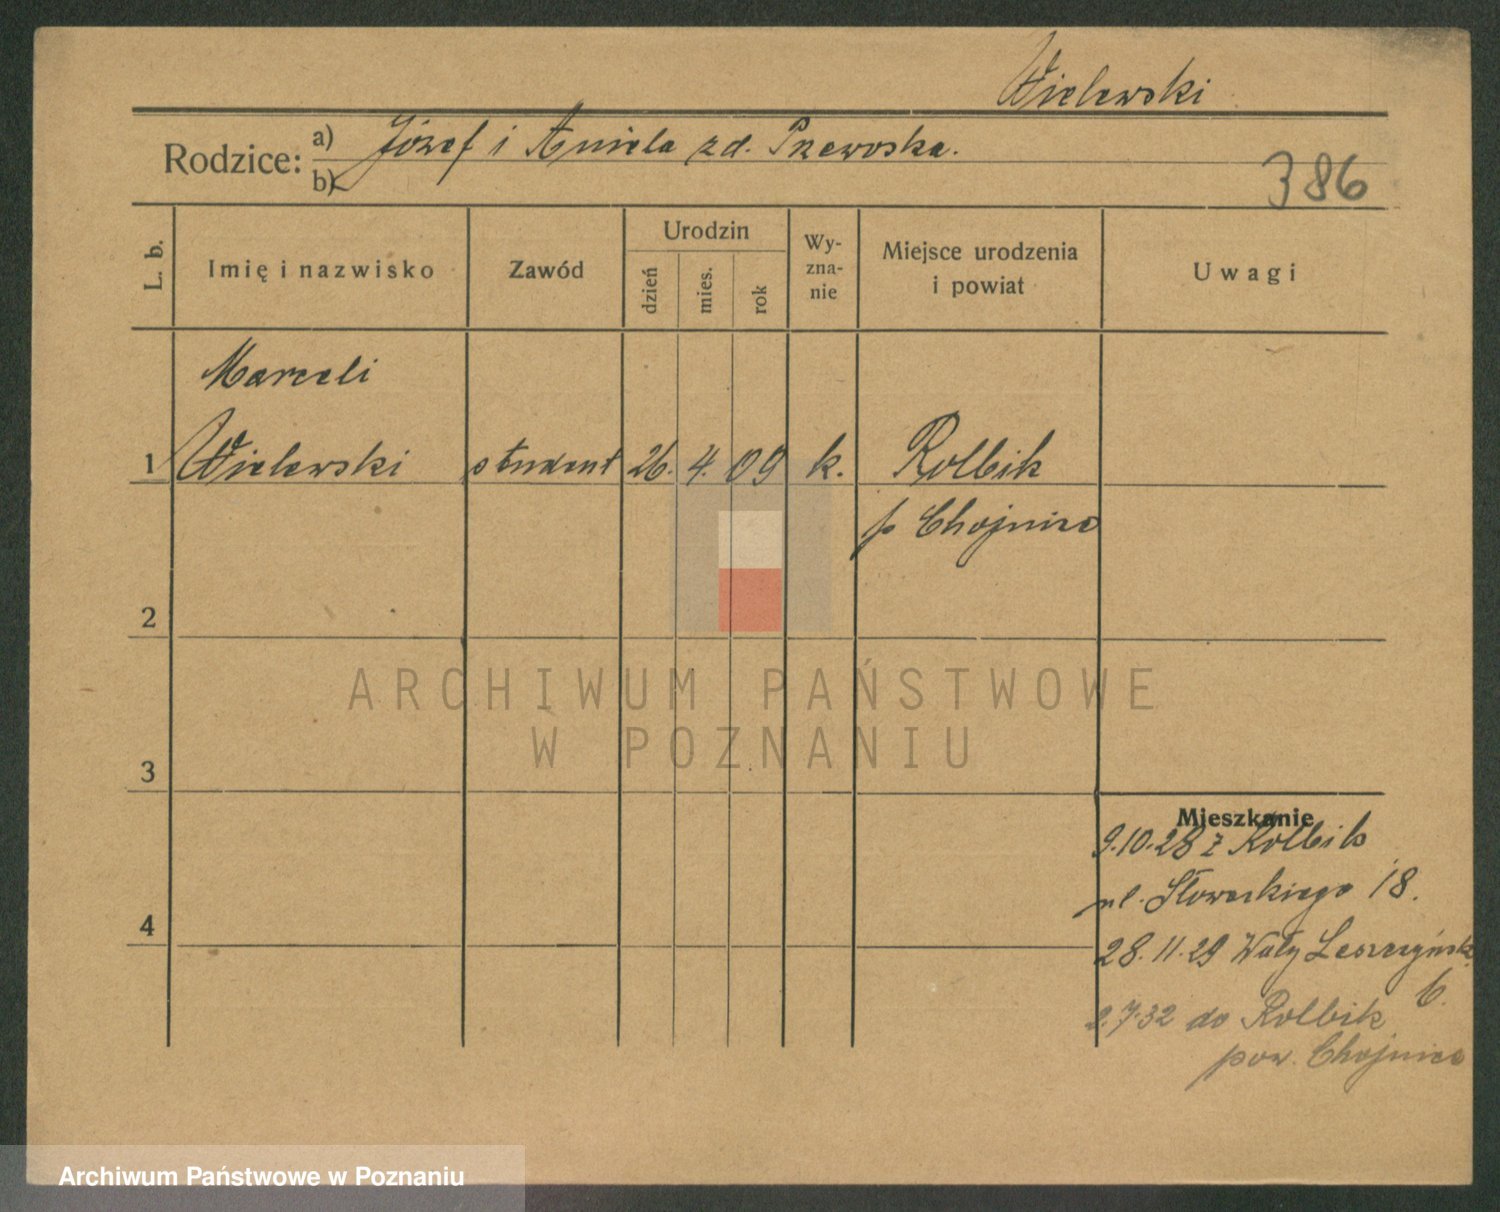 Wielewski
Rodzice: a) Józef i Aniela zd. Przewoska.
b)
386
L. b.
Imię i nazwisko
Zawód
Urodzin
dzień
mies.
rok
Wy-
zna-
nie
Miejsce urodzenia
i powiat
Uwagi
Marceli
1 Wielewski student 26. 4. 09 k. Rolbik
p Chojnice
2
ARCHIWUM PAŃSTWOWE
W POZNANIU
3
Mieszkanie
9.10.28 z Rolbik
ul. Słowackiego 18.
4
28.11.29 Wały Leszczyńsk.
6.
2.7.32 do Rolbik
pow. Chojnice
Archiwum Państwowe w Poznaniu